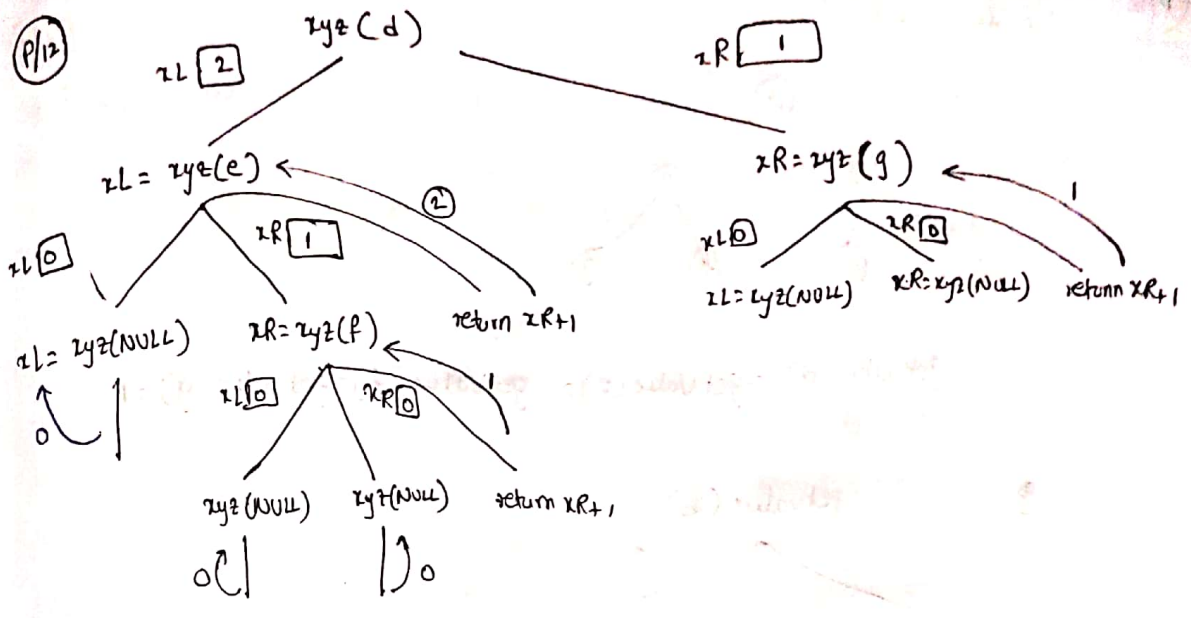 P/12
xyz(d)
xL 2
xR 1
xL = xyz(e)
2
xR = xyz(g)
1
xL 0
xR 1
xL 0
xR 0
xL = xyz(NULL)
xR = xyz(f)
return xR+1
xL = xyz(NULL)
xR = xyz(NULL)
return xR+1
0
xL 0
xR 0
1
xyz(NULL)
xyz(NULL)
return xR+1
0
0